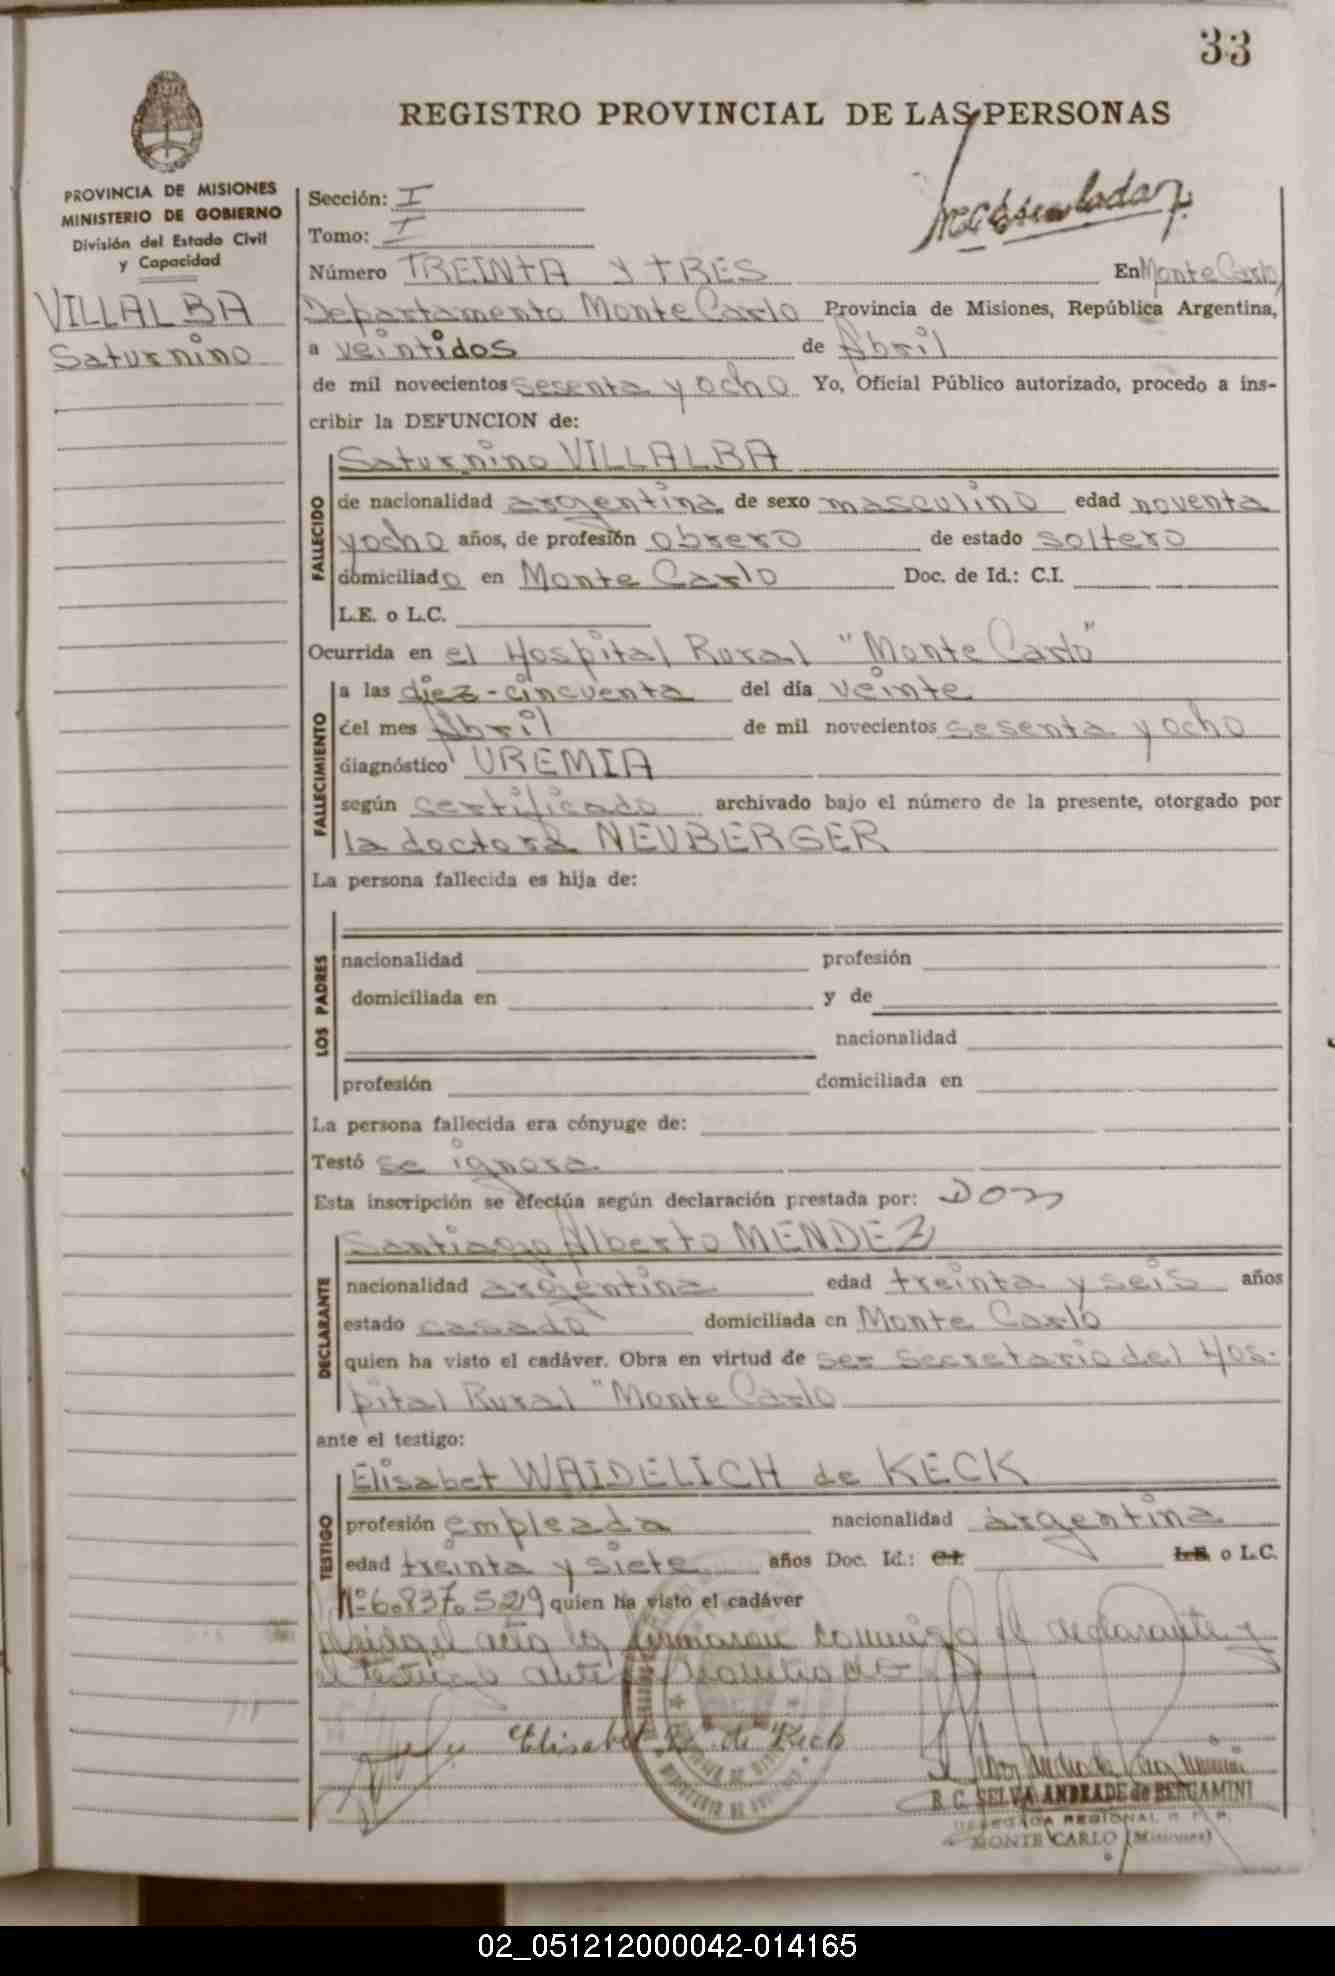 33
REGISTRO PROVINCIAL DE LAS PERSONAS
PROVINCIA DE MISIONES
MINISTERIO DE GOBIERNO
División del Estado Civil
y Capacidad
VILLALBA
Saturnino
Sección: I
Tomo: I
Número TREINTA Y TRES En Monte Carlo
Departamento Monte Carlo Provincia de Misiones, República Argentina,
a veintidos de Abril
de mil novecientos sesenta y ocho Yo, Oficial Público autorizado, procedo a ins-
cribir la DEFUNCION de:
Saturnino VILLALBA
FALLECIDO
de nacionalidad argentina de sexo masculino edad noventa
y ocho años, de profesión obrero de estado soltero
domiciliado en Monte Carlo Doc. de Id.: C.I.
L.E. o L.C.
Ocurrida en el Hospital Rural "Monte Carlo"
FALLECIMIENTO
a las diez-cincuenta del día veinte
del mes Abril de mil novecientos sesenta y ocho
diagnóstico UREMIA
según certificado archivado bajo el número de la presente, otorgado por
la doctora NEUBERGER
La persona fallecida es hija de:
LOS PADRES
nacionalidad profesión
domiciliada en y de
nacionalidad
profesión domiciliada en
La persona fallecida era cónyuge de:
Testó se ignora
Esta inscripción se efectúa según declaración prestada por: Don
Santiago Alberto MENDEZ
DECLARANTE
nacionalidad argentina edad treinta y seis años
estado casado domiciliada en Monte Carlo
quien ha visto el cadáver. Obra en virtud de ser secretario del Hos-
pital Rural "Monte Carlo
ante el testigo:
Elisabet WAIDELICH de KECK
TESTIGO
profesión empleada nacionalidad argentina
edad treinta y siete años Doc. Id.: C.I. L.E. o L.C.
Nº 6.837.529 quien ha visto el cadáver
el acta la firmaron conmigo el declarante y
el testigo ante
Elisabet W. de Keck
R. C. SELVA ANDRADE de BERGAMINI
DELEGADA REGIONAL R. P. P.
MONTE CARLO (Misiones)
02_051212000042-014165